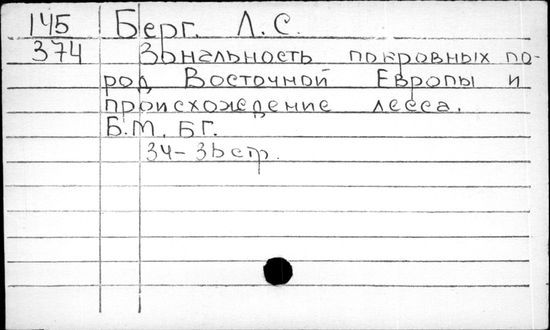 145 Берг. Л. С.
374 Зональность покровных по-
род Восточной Европы и
происхождение лесса.
Б.М. БГ.
34-36 стр.